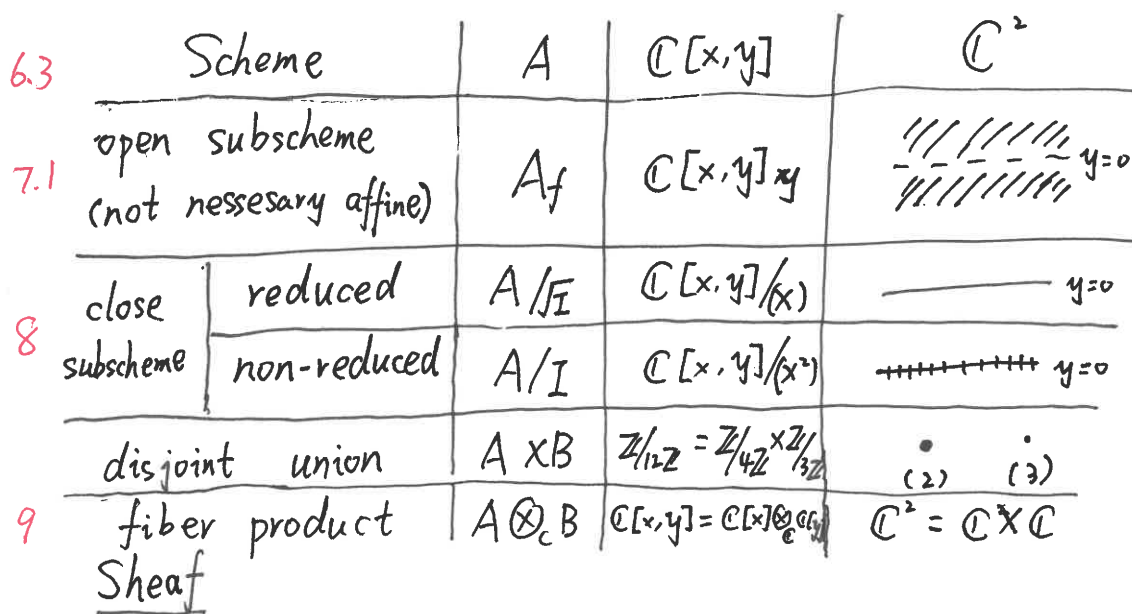 6.3 Scheme A ℂ[x,y] ℂ²
7.1 open subscheme (not nessesary affine) A_f ℂ[x,y]_y y=0
8 close subscheme reduced A/√I ℂ[x,y]/(x) y=0
non-reduced A/I ℂ[x,y]/(x²) y=0
disjoint union A×B ℤ/12ℤ = ℤ/4ℤ × ℤ/3ℤ (2) (3)
9 fiber product A⊗_C B ℂ[x,y] = ℂ[x]⊗_ℂ ℂ[y] ℂ² = ℂ × ℂ
Sheaf